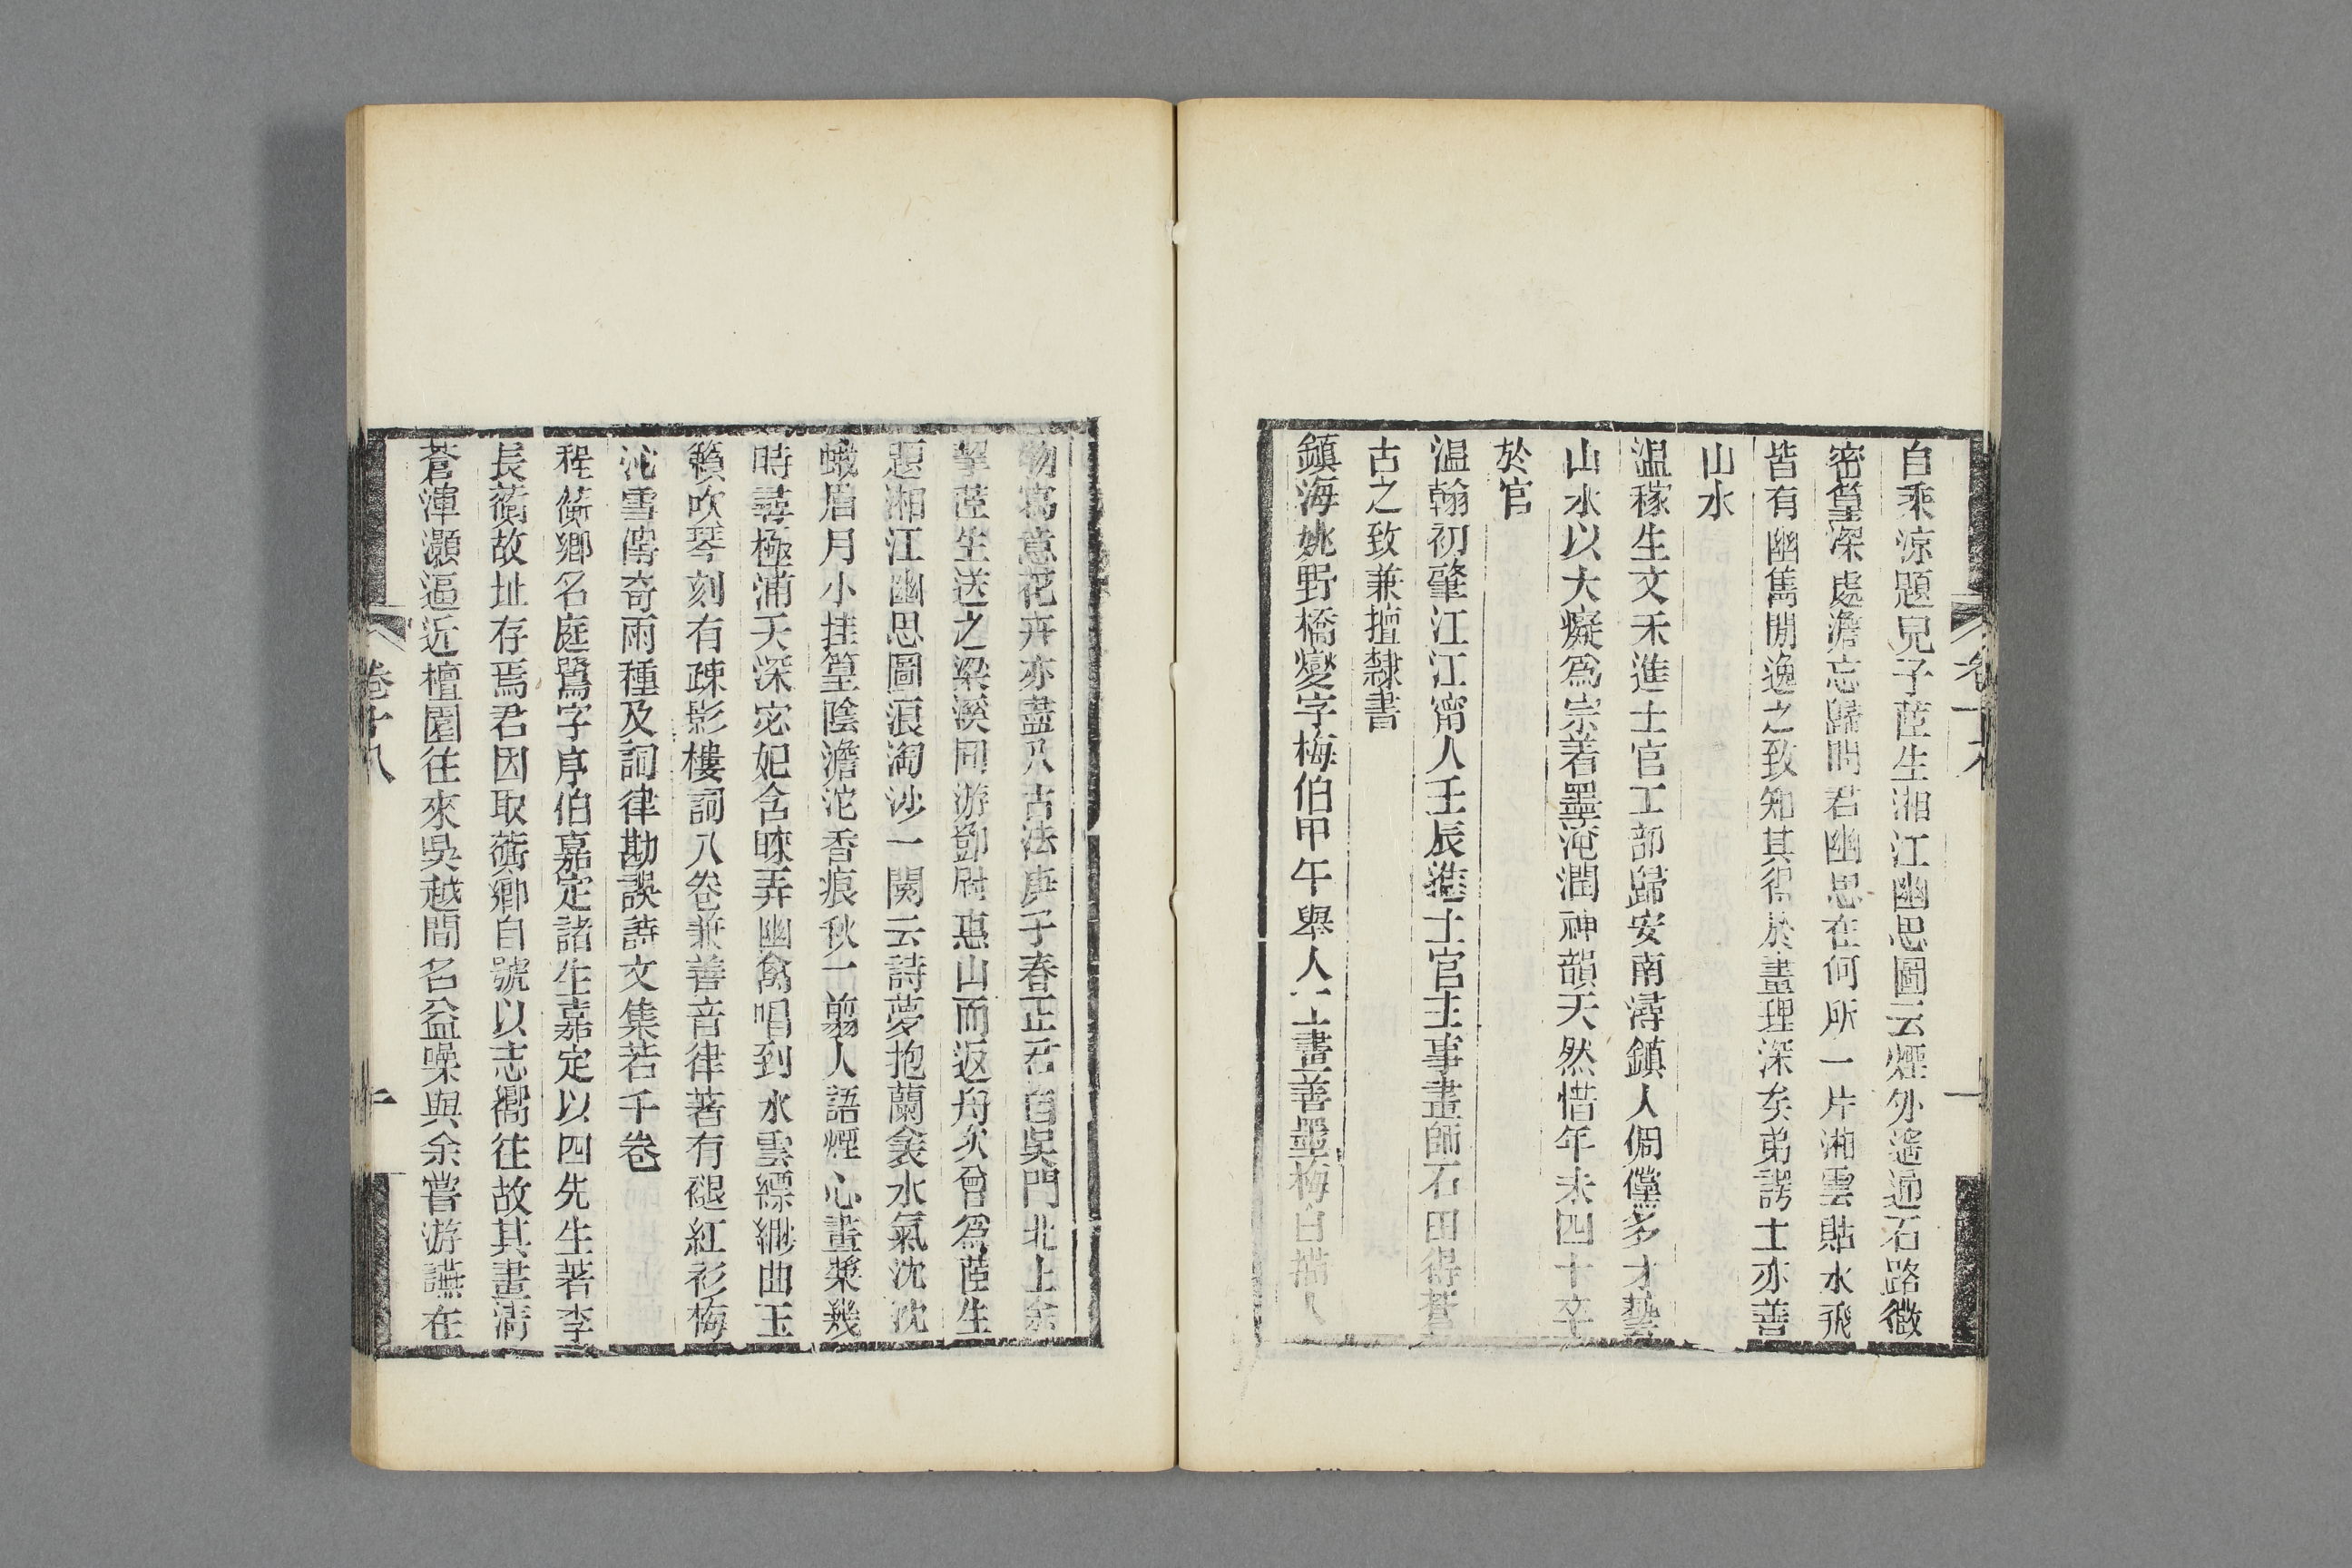 自乘涼題兒子茝生湘江幽思圖云煙外遙通石路微
密篁深處澹忘歸問君幽思在何所一片湘雲貼水飛
皆有幽雋閒逸之致知其得於畫理深矣弟諤士亦善
山水
溫稼生文禾進士官工部歸安南潯鎮人倜儻多才藝
山水以大癡爲宗着墨淹潤神韻天然惜年未四十卒
於官
溫翰初肇江江甯人壬辰進士官主事畫師石田得蒼
古之致兼擅隸書
鎮海姚野橋燮字梅伯甲午舉人工畫善墨梅白描人
物寫意花卉亦盡八古法庚子春正君自吳門北上余
挈茝生送之梁溪同游鄧尉惠山而返舟次曾爲茝生
題湘江幽思圖浪淘沙一闋云詩夢抱蘭衾水氣沈沈
蛾眉月小挂篁陰澹沱香痕秋一翦人語煙心畫槳幾
時尋極浦天深宓妃含睞弄幽禽唱到水雲縹緲曲玉
籟吹琴刻有疎影樓詞八卷兼善音律著有褪紅衫梅
沁雪傳奇兩種及詞律勘誤詩文集若干卷
程蘅鄉名庭鷺字序伯嘉定諸生嘉定以四先生著李
長蘅故址存焉君因取蘅鄉自號以志嚮往故其畫清
蒼渾灝逼近檀園往來吳越間名益噪與余嘗游讌在
卷十八